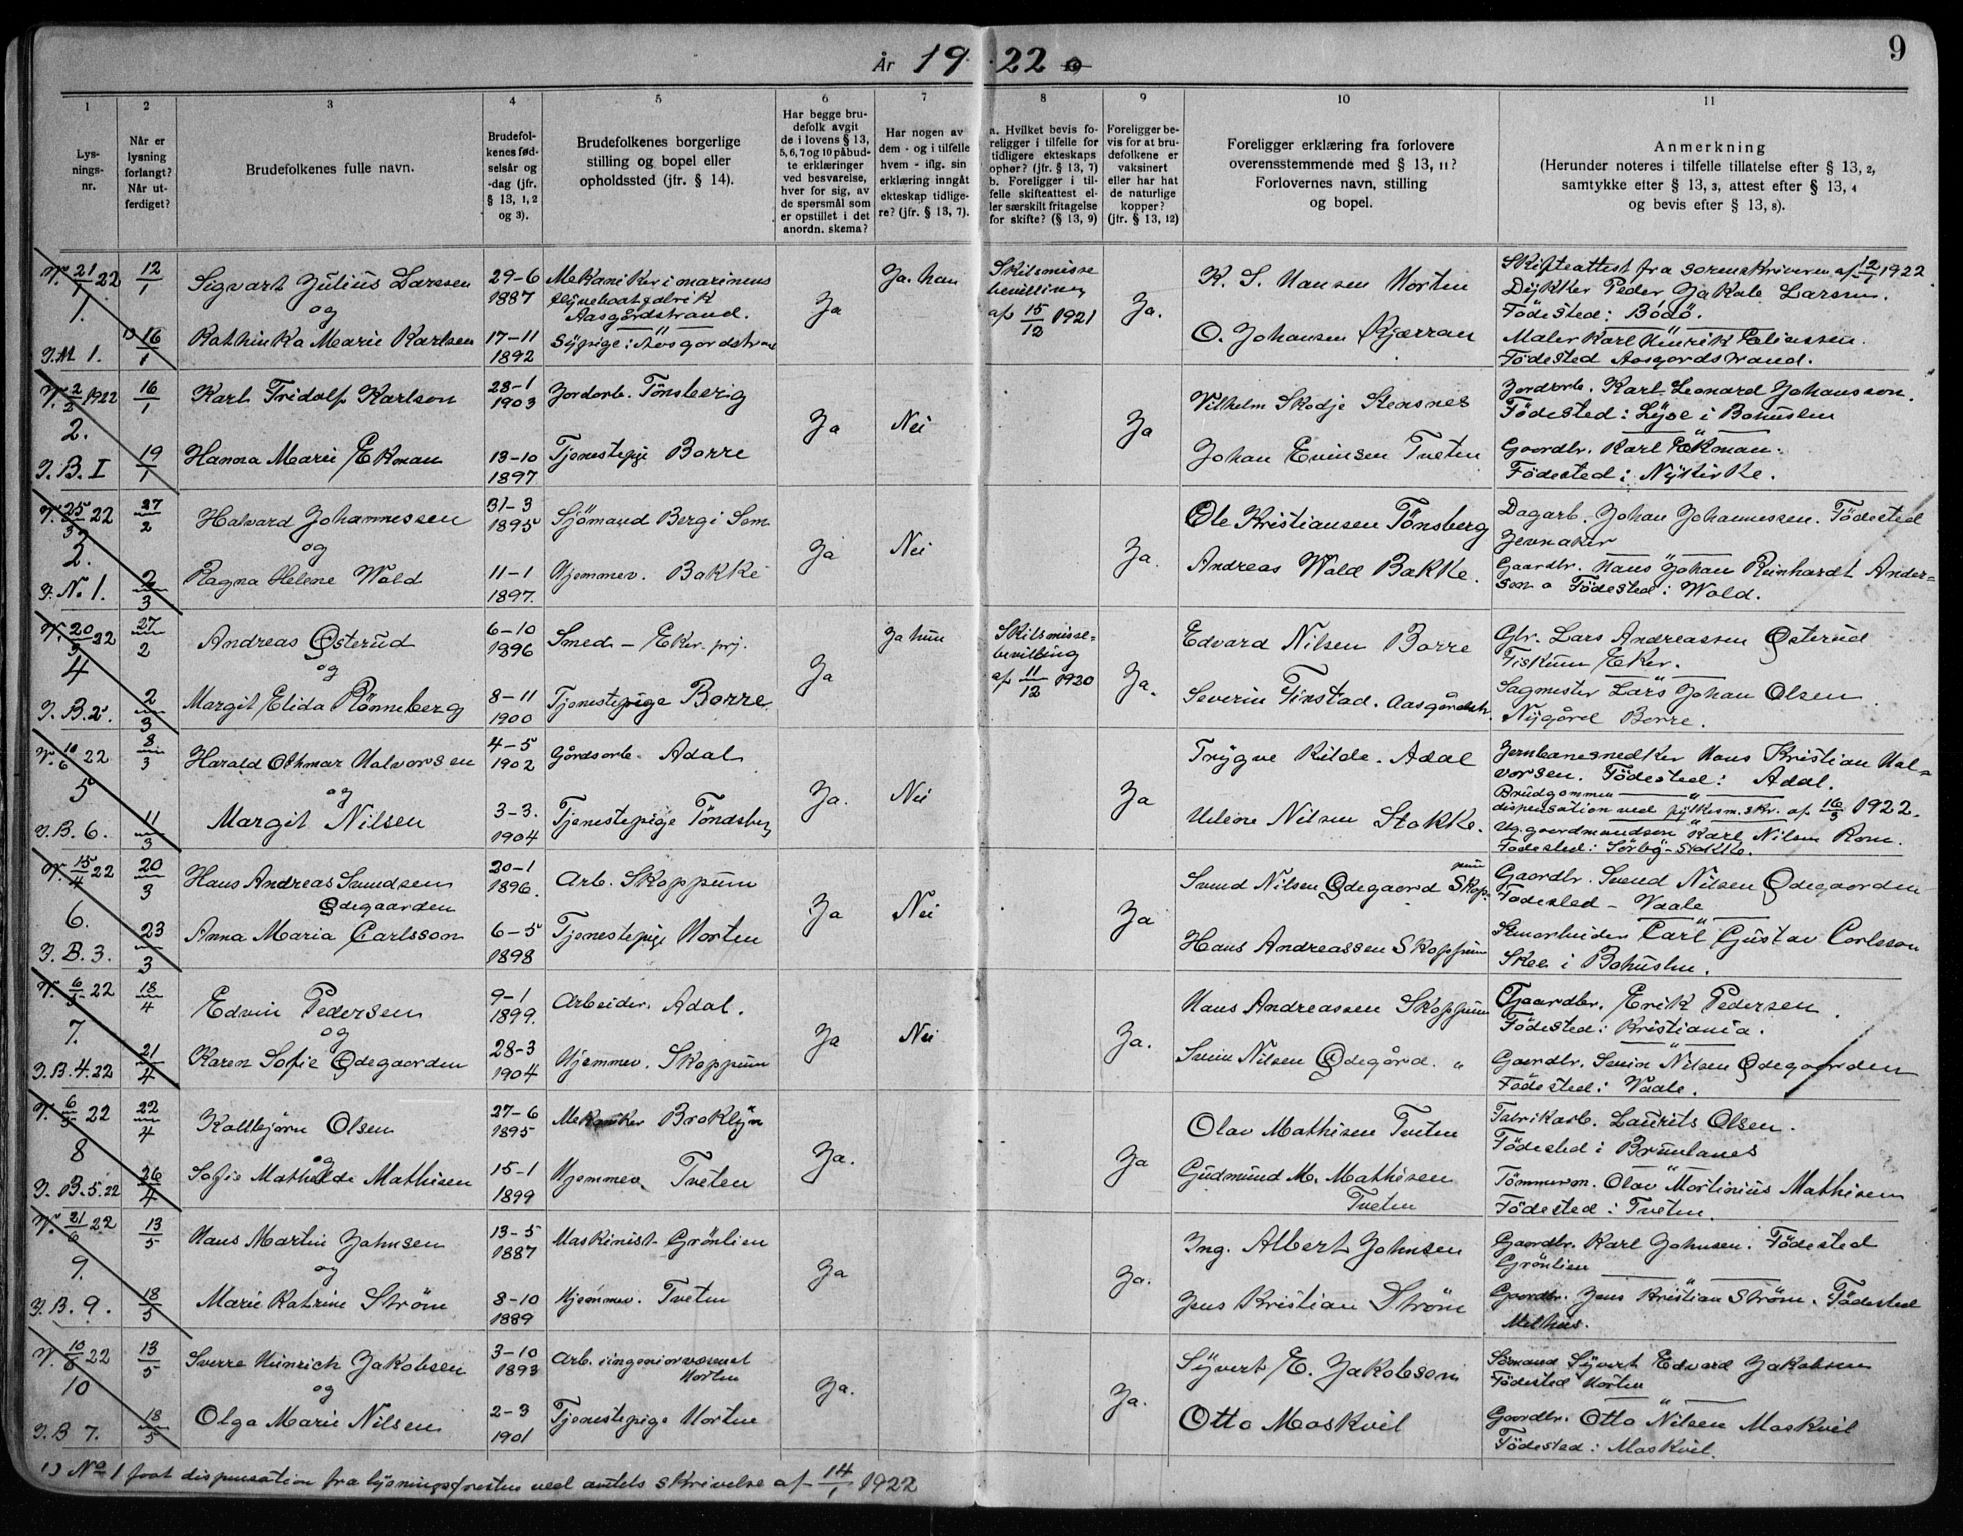 9
År 1922
1
2
3
4
5
6
7
8
9
10
11
Lys-
nings-
nr.
Når er
lysning
forlangt?
Når ut-
ferdiget?
Brudefolkenes fulle navn.
Brudefol-
kenes fød-
selsår og
-dag (jfr.
§ 13, 1, 2
og 3).
Brudefolkenes borgerlige
stilling og bopel eller
opholdssted (jfr. § 14).
Har begge bru-
defolk avgit
de i lovens § 13,
5, 6, 7 og 10 påbud-
te erklæringer
ved besvarelse,
hver for sig, av
de spørsmål som
er opstillet i det
anordn. skema?
Har nogen av
dem - og i tilfelle
hvem - iflg. sin
erklæring inngått
ekteskap tidlige-
re? (jfr. § 13, 7).
a. Hvilket bevis fo-
religger i tilfelle for
tidligere ekteskaps
ophør? (jfr. § 13, 7)
b. Foreligger i til-
felle skifteattest el-
ler særskilt fritagelse
for skifte? (§ 13, 9)
Foreligger be-
vis for at bru-
defolkene er
vaksinert
eller har hat
de naturlige
kopper?
(jfr. § 13, 12)
Foreligger erklæring fra forlovere
overensstemmende med § 13, 11?
Forlovernes navn, stilling
og bopel.
Anmerkning
(Herunder noteres i tilfelle tillatelse efter § 13, 2,
samtykke efter § 13, 3, attest efter § 13, 4
og bevis efter § 13, 8).
V. 21/1 22
1.
J.M 1.
12/1
1) 16/1
Sigvart Julius Larssen
og
Kathinka Marie Karlsen
29-6
1887
17-11
1892
Mekaniker i marinens
flyvebaatfabrik
Aasgårdstrand.
Sypige: Aasgordstrand
Ja
Ja. han
Skilsmisse
bevilling
af 15/12 1921
Ja.
K. S. Hansen Horten
O. Johansen Kjærran
Skifteattest fra sorenskriveren af 12/1 1922
Dykker Peder Jakob Larssen.
Födested: Bodö.
Maler Karl Henrik Eliassen.
Födested Aasgordstrand.
V. 2/2 1922
2.
J.B. I
16/1
19/1
Karl Fridolf Karlson
Hanna Marie Ekman
28-1
1903
13-10
1897
Jordarb. Tönsberg
Tjenestepige Borre
Ja
Nei
Ja
Vilhelm Skodje Stensnes
Johan Evensen Tveten
Jordarb. Karl Leonard Johansson.
Födested: Lyse i Bohuslen
Gaardbr. Karl Ekman.
Födested: Nykirke.
V. 25/3 22
J. N. 1.
27/2
2/3
Halvard Johannessen
og
Ragna Helene Wold
31-3
1895
11-1
1897.
Sjömand Berg i Sem
Hjemmev. Bakke
Ja
Nei
Ja.
Ole Kristiansen Tönsberg
Andreas Wold Bakke.
Dagarb. Johan Johannessen. Födested
Jevnaker
Gaardbr. Hans Johan Reinhardt Ander=
son Födested: Wold.
V. 20/3 22
4
J. B. 2.
27/2
2/3
Andreas Østerud
og
Margit Elida Rönneberg
6-10
1896
8-11
1900
Smed - Eker. prj.
Tjenestepige Borre
Ja
Ja hun
Skilsmisse=
bevilling
af 11/12 1920
Ja.
Edvard Nilsen Borre
Severin Finstad. Aasgårdstr.
Gbr. Lars Andreassen Østerud
Fiskum Eker.
Sagmester Lars Johan Olsen
Nygård Borre.
V. 10/6 22
5
J. B. 6.
8/3
11/3
Harald Othmar Halvorsen
og
Margit Nilsen
4-5
1902
3-3.
1904
Gårdsarb. Adal
Tjenestepige Töndsberg
Ja.
Nei
Ja
Trygve Kilde. Adal
Helene Nilsen Stokke.
Jernbanesnedker Hans Kristian Hal=
vorsen. Födested: Adal.
Brudgommen
dispensation ved fylkesm. skr. af 16/3 1922.
Ug. gaardmandsøn Karl Nilsen Rom.
Födested: Sörby-Stokke.
V. 15/4 22
6.
J. B. 3.
20/3
23/3
Hans Andreas Svendsen
Ødegaarden
Anna Maria Carlsson
20-1
1896.
6-5
1898
Arb. Skoppum
Tjenestepige Horten
Ja
Nei
Ja
Svend Nilsen Ødegaard Skop-
pum
Hans Andreassen Skoppum
Gaardbr. Svend Nilsen Ødegaarden
Födested - Vaale
Stenarbeider Carl Gustav Carlsson
Skee i Bohuslen.
V. 6/5 22
7.
J. B. 4. 22
18/4
21/4
Edvin Pedersen
og
Karen Sofie Ødegaarden
9-1
1899.
28-3
1904
Arbeider. Adal.
Hjemmev. Skoppum
Ja
Nei
Ja.
Hans Andreassen Skoppum
Svein Nilsen Ødegård. "
Gaardbr. Erik Pedersen.
Födested: Kristiania.
Gaardbr. Svein Nilsen Ødegaarden
Födested: Vaale.
V. 6/5 22
8
J. B. 5. 22
22/4
26/4
Kolbjörn Olsen
og
Sofie Mathilde Mathisen
27-6
1895
15-1
1899
Mekaniker Broklyn
Hjemmev. Tveten
Ja.
Ja
Olav Mathisen Tveten
Gudmund M. Mathisen
Tveten
Fabrikarb. Laurits Olsen.
Födested i Brunlanes
Tömmerm. Olav Martinius Mathisen
Födested: Tveten.
V. 21/6 22
9.
J. B. 9.
13/5
18/5
Hans Martin Johnsen
og
Marie Katrine Ström
13-5
1887
8-10
1889
Maskinist. Grönlien
Hjemmev. Tveten
Ja
Ja.
Ing. Albert Johnsen
Jens Kristian Ström
Gaardbr. Karl Johnsen. Födested
Grönlien
Gaardbr. Jens Kristian Ström. Födested
Melhus.
V. 10/6 22
10
J. B 7.
13/5
18/5
Sverre Heinrich Jakobsen
og
Olga Marie Nilsen
3-10
1893
2-3
1901
Arb. i ingeniorvæsenet
Horten
Tjenestepige Horten
Ja.
Ja.
Syvert E. Jakobsen
Otto Moskvil
Sömand Syvert Edvard Jakobsen
Födested Horten
Gaardbr. Otto Nilsen Moskvil
Födested: Moskvil.
1) No 1 faat dispensation fra lysningsfristen ved amtets skrivelse af 14/1 1922